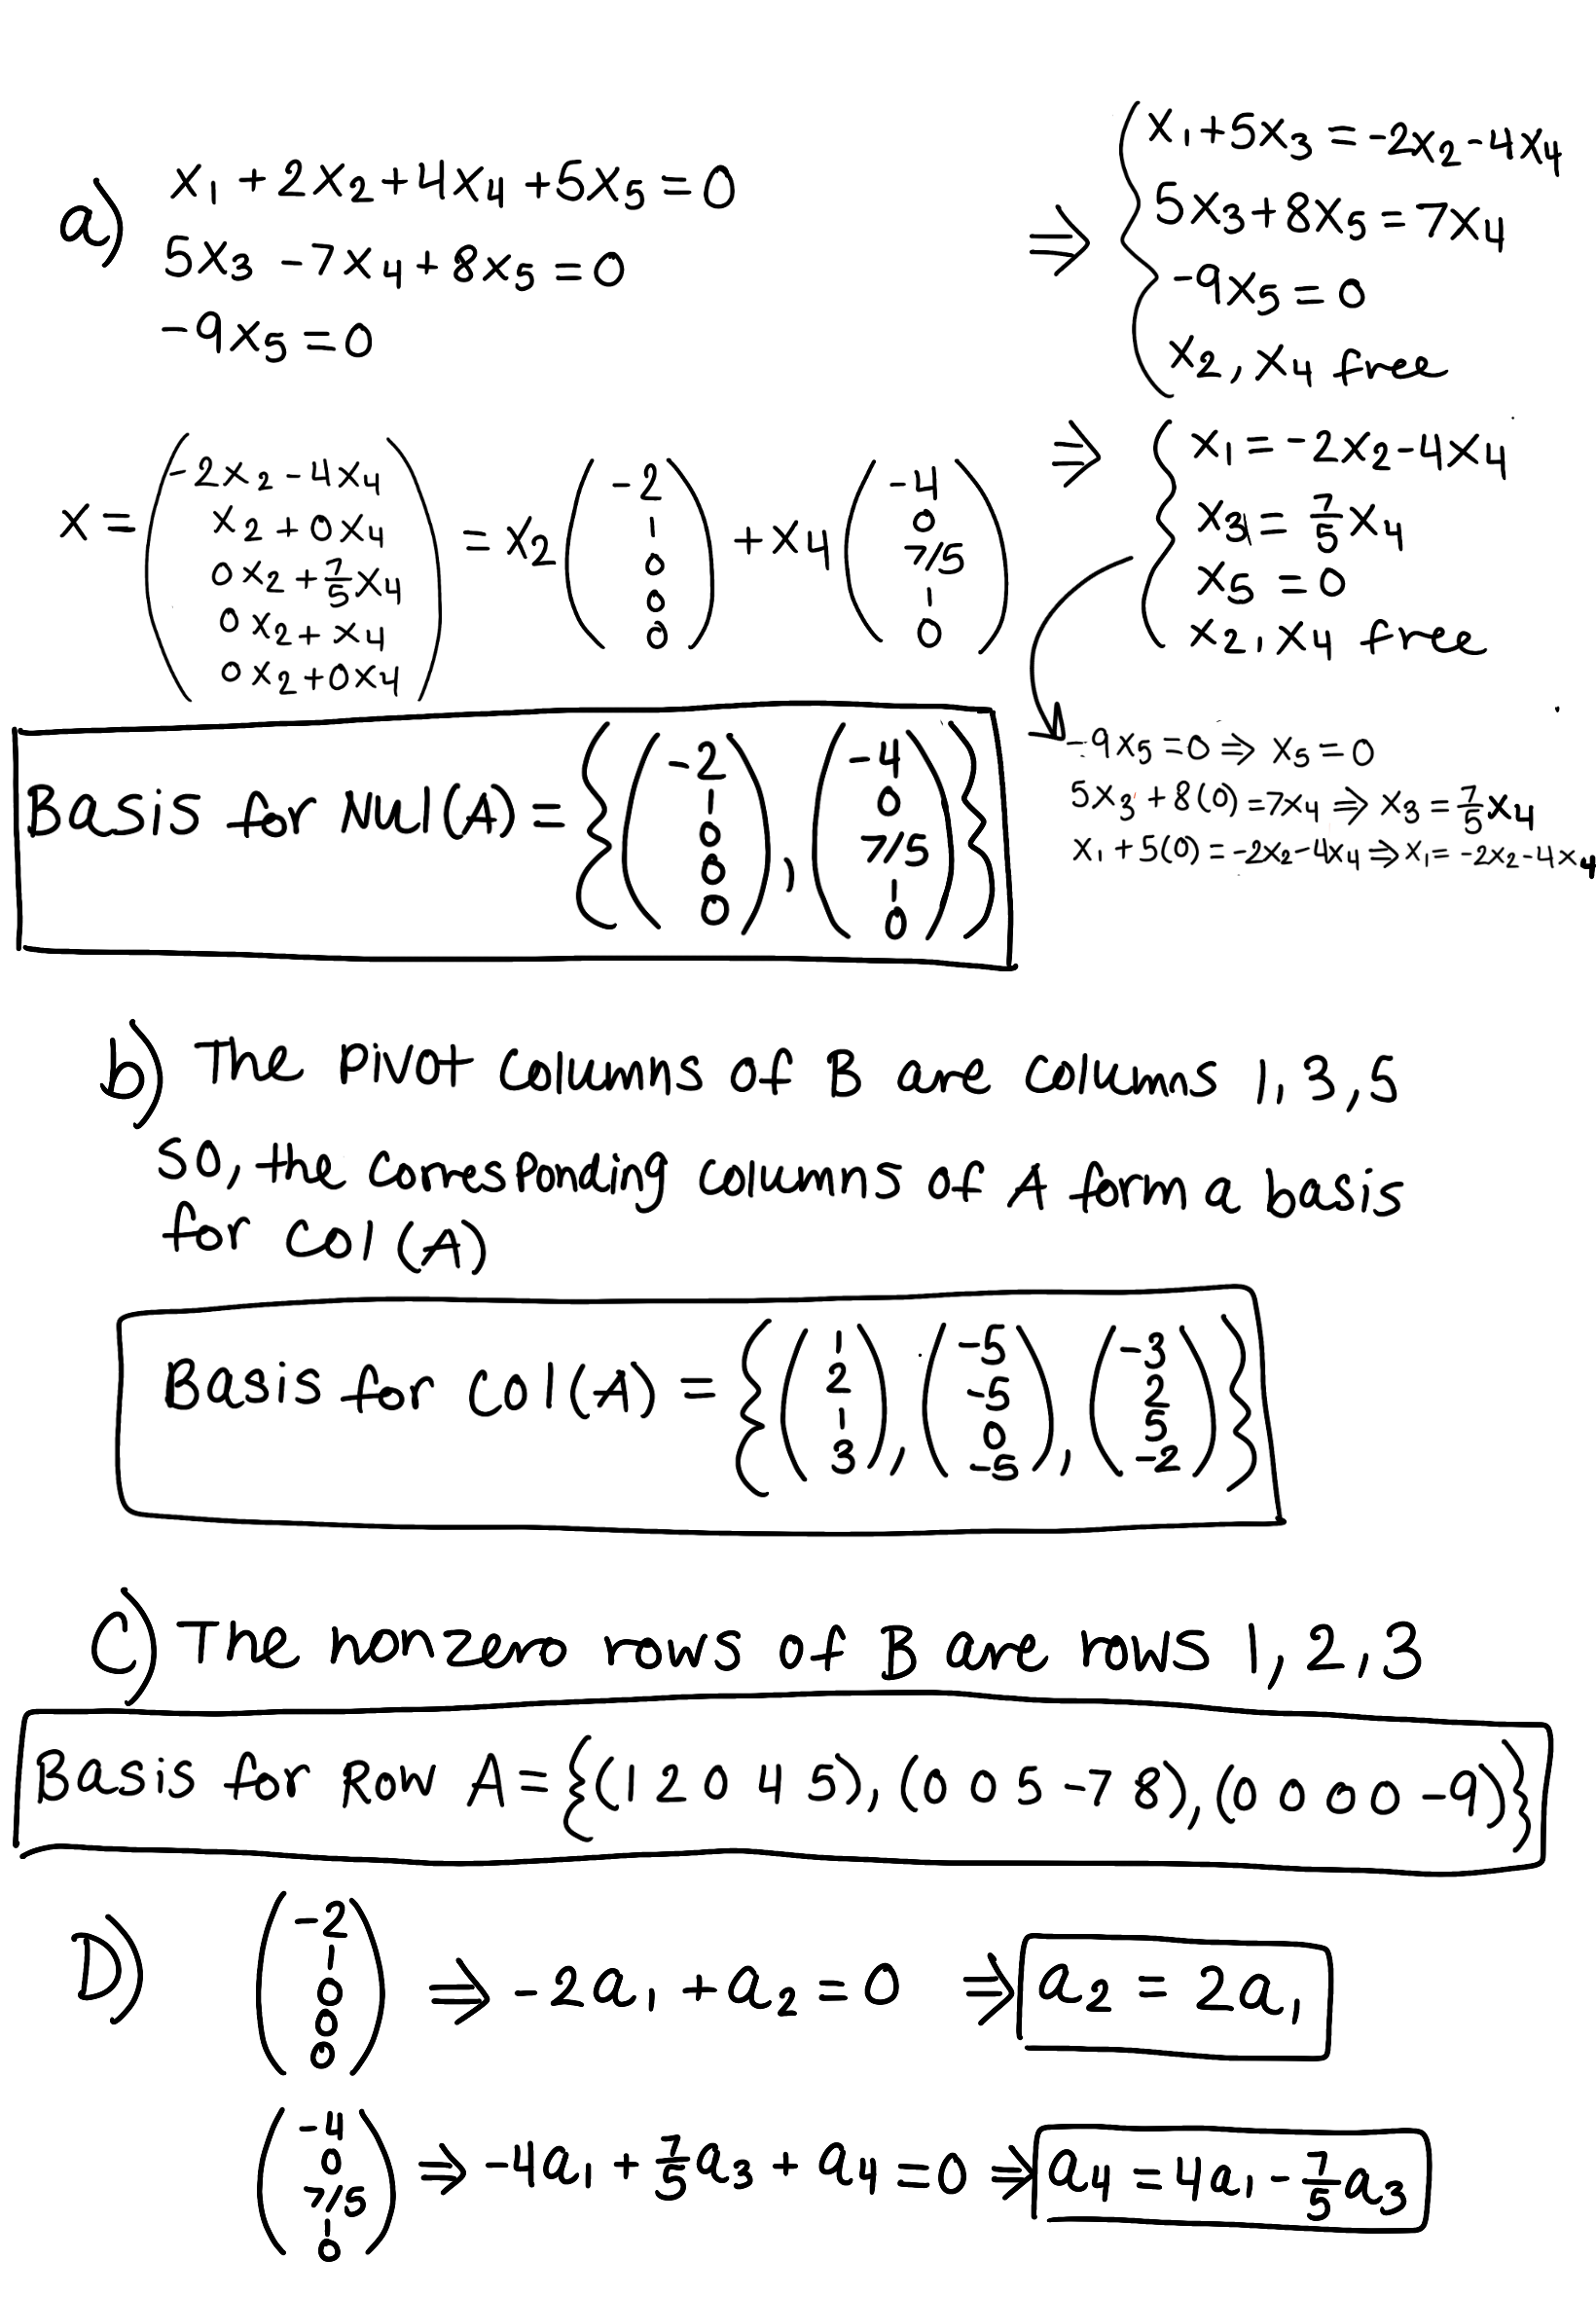 a) x₁ + 2x₂ + 4x₄ + 5x₅ = 0
5x₃ - 7x₄ + 8x₅ = 0
-9x₅ = 0
⇒ { x₁ + 5x₃ = -2x₂ - 4x₄
5x₃ + 8x₅ = 7x₄
-9x₅ = 0
x₂, x₄ free
⇒ { x₁ = -2x₂ - 4x₄
x₃ = 7/5 x₄
x₅ = 0
x₂, x₄ free
-9x₅ = 0 ⇒ x₅ = 0
5x₃ + 8(0) = 7x₄ ⇒ x₃ = 7/5 x₄
x₁ + 5(0) = -2x₂ - 4x₄ ⇒ x₁ = -2x₂ - 4x₄
x = ( -2x₂ - 4x₄, x₂ + 0x₄, 0x₂ + 7/5 x₄, 0x₂ + x₄, 0x₂ + 0x₄ ) = x₂ ( -2, 1, 0, 0, 0 ) + x₄ ( -4, 0, 7/5, 1, 0 )
Basis for Nul(A) = { ( -2, 1, 0, 0, 0 ), ( -4, 0, 7/5, 1, 0 ) }
b) The pivot columns of B are columns 1, 3, 5
so, the corresponding columns of A form a basis
for Col(A)
Basis for Col(A) = { ( 1, 2, 1, 3 ), ( -5, -5, 0, -5 ), ( -3, 2, 5, -2 ) }
C) The nonzero rows of B are rows 1, 2, 3
Basis for Row A = {(1 2 0 4 5), (0 0 5 -7 8), (0 0 0 0 -9)}
D) ( -2, 1, 0, 0, 0 ) ⇒ -2a₁ + a₂ = 0 ⇒ a₂ = 2a₁
( -4, 0, 7/5, 1, 0 ) ⇒ -4a₁ + 7/5 a₃ + a₄ = 0 ⇒ a₄ = 4a₁ - 7/5 a₃